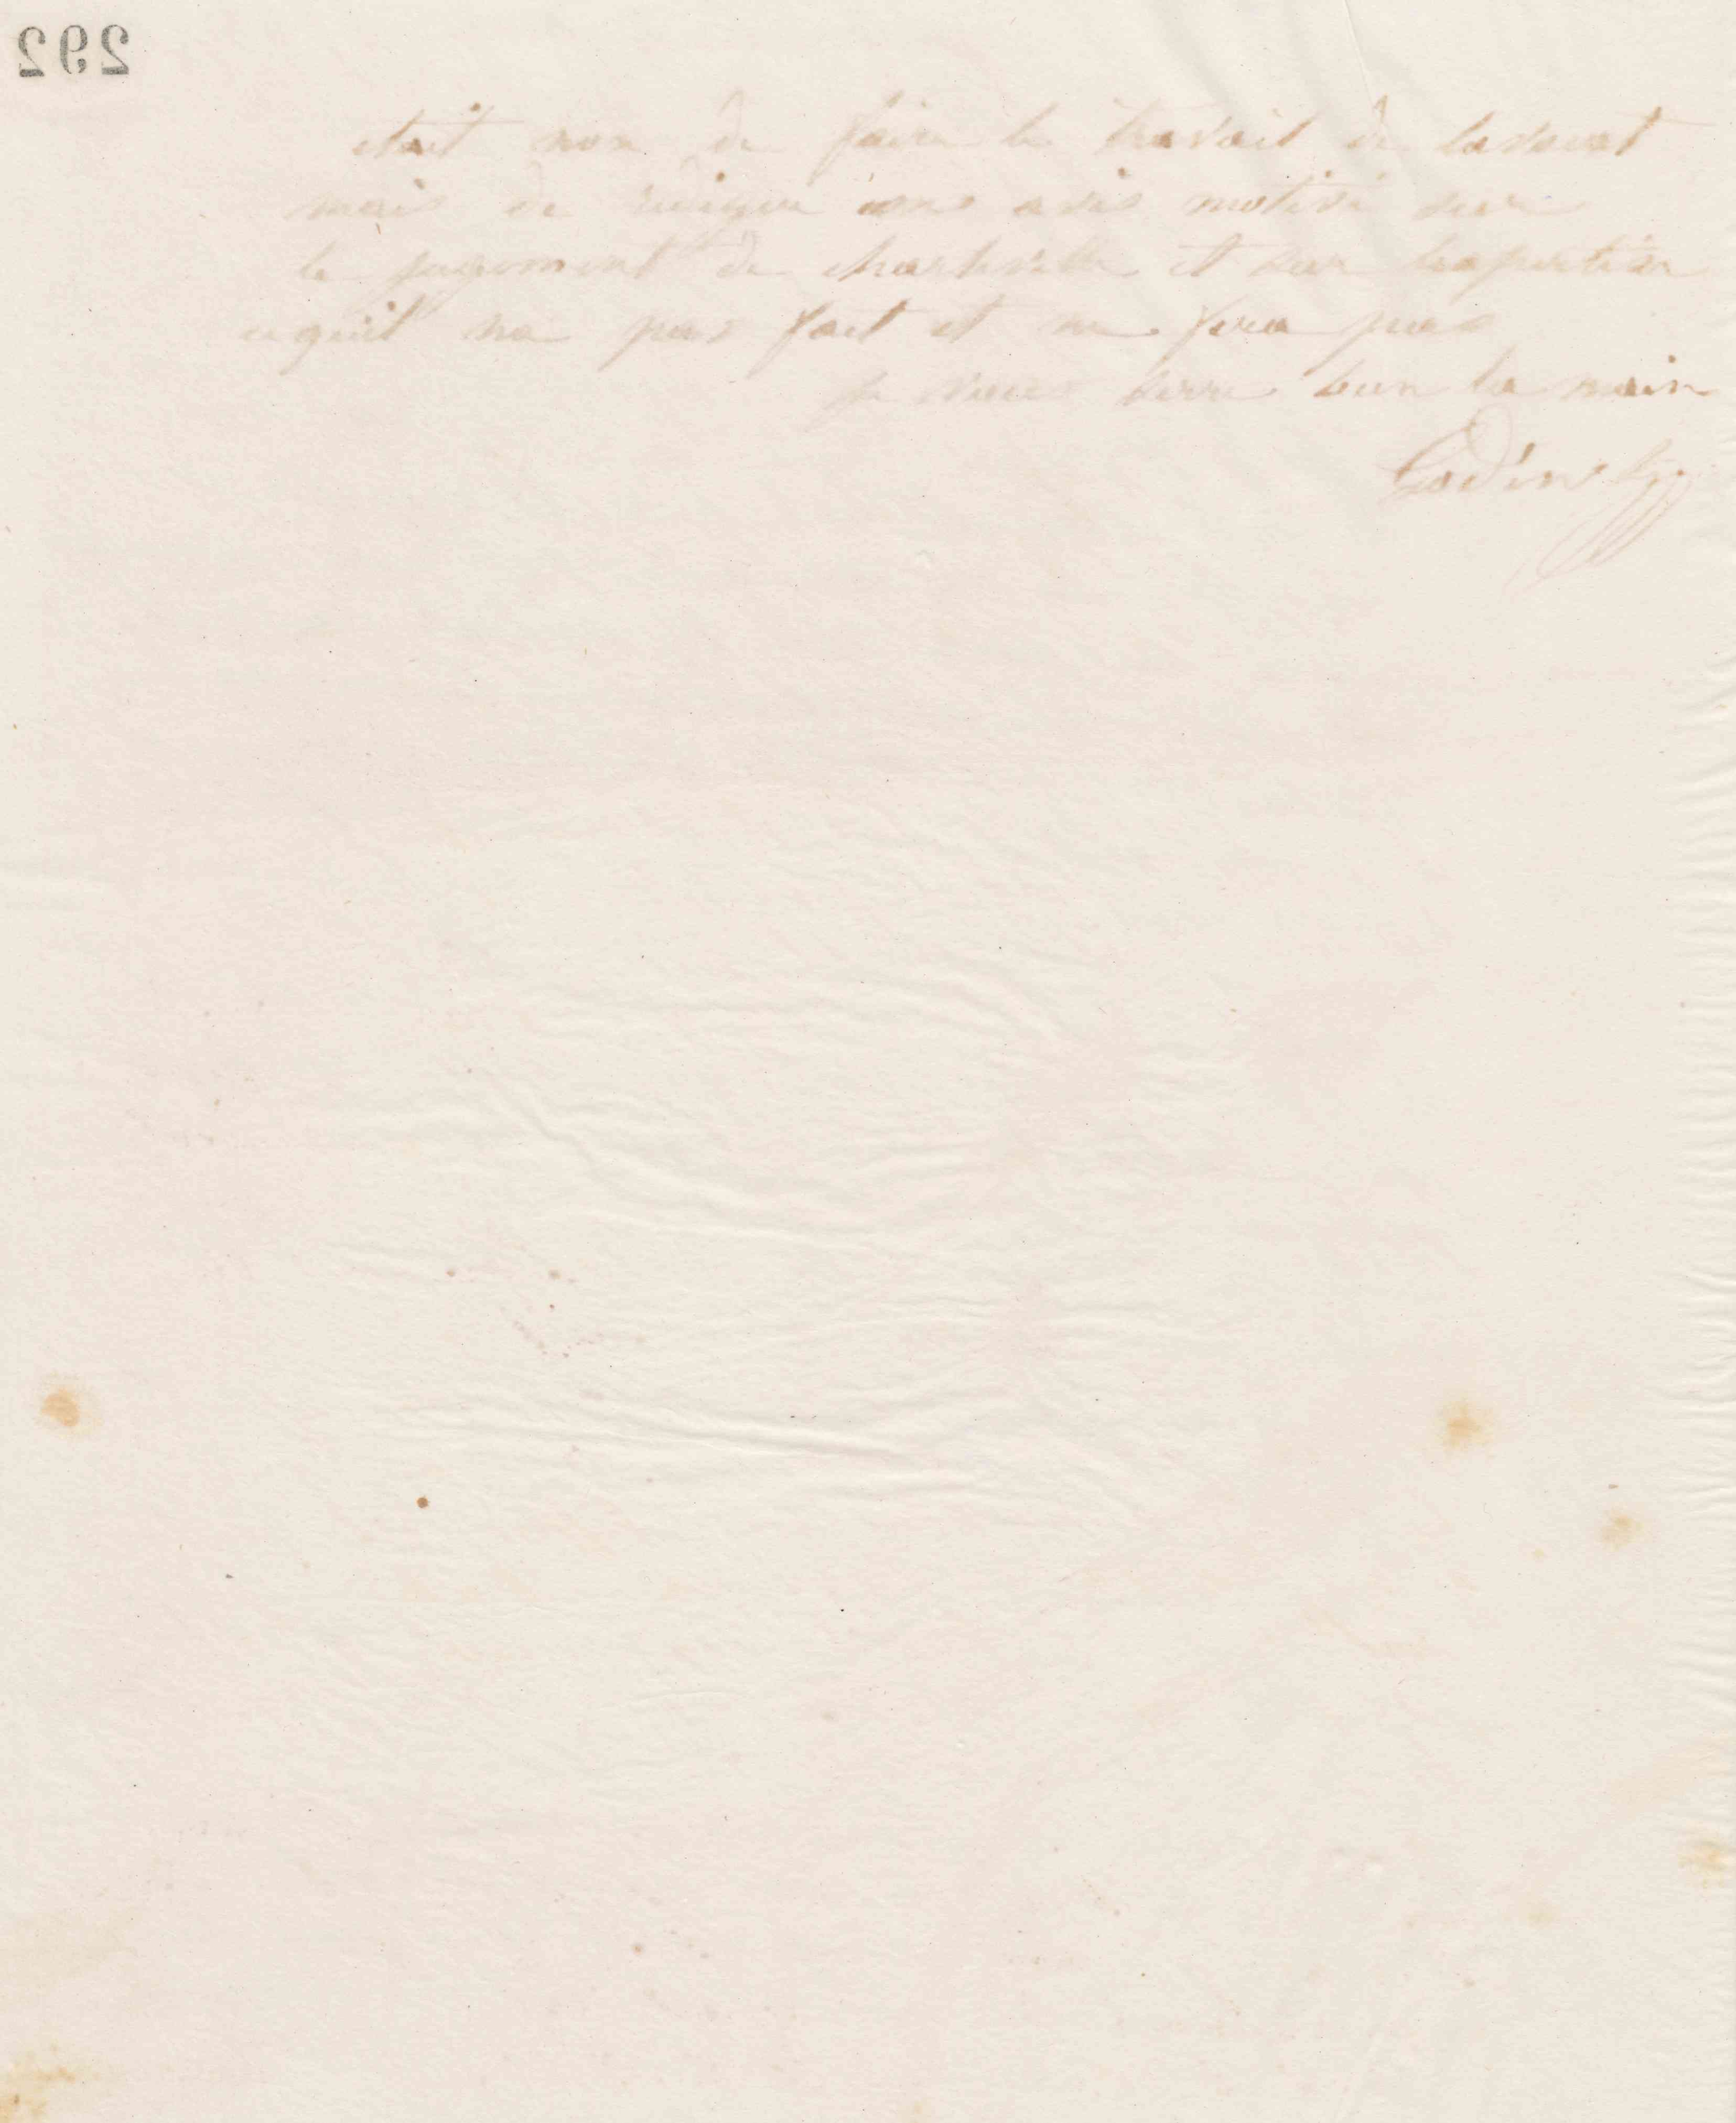 292
etait non de faire le travail de lavocat
mais de rediger un avis motivé sur
le jugement de charleville et sur lexpertise
ce quil na pas fait et ne fera pas
je vous serre bien la main
Godin